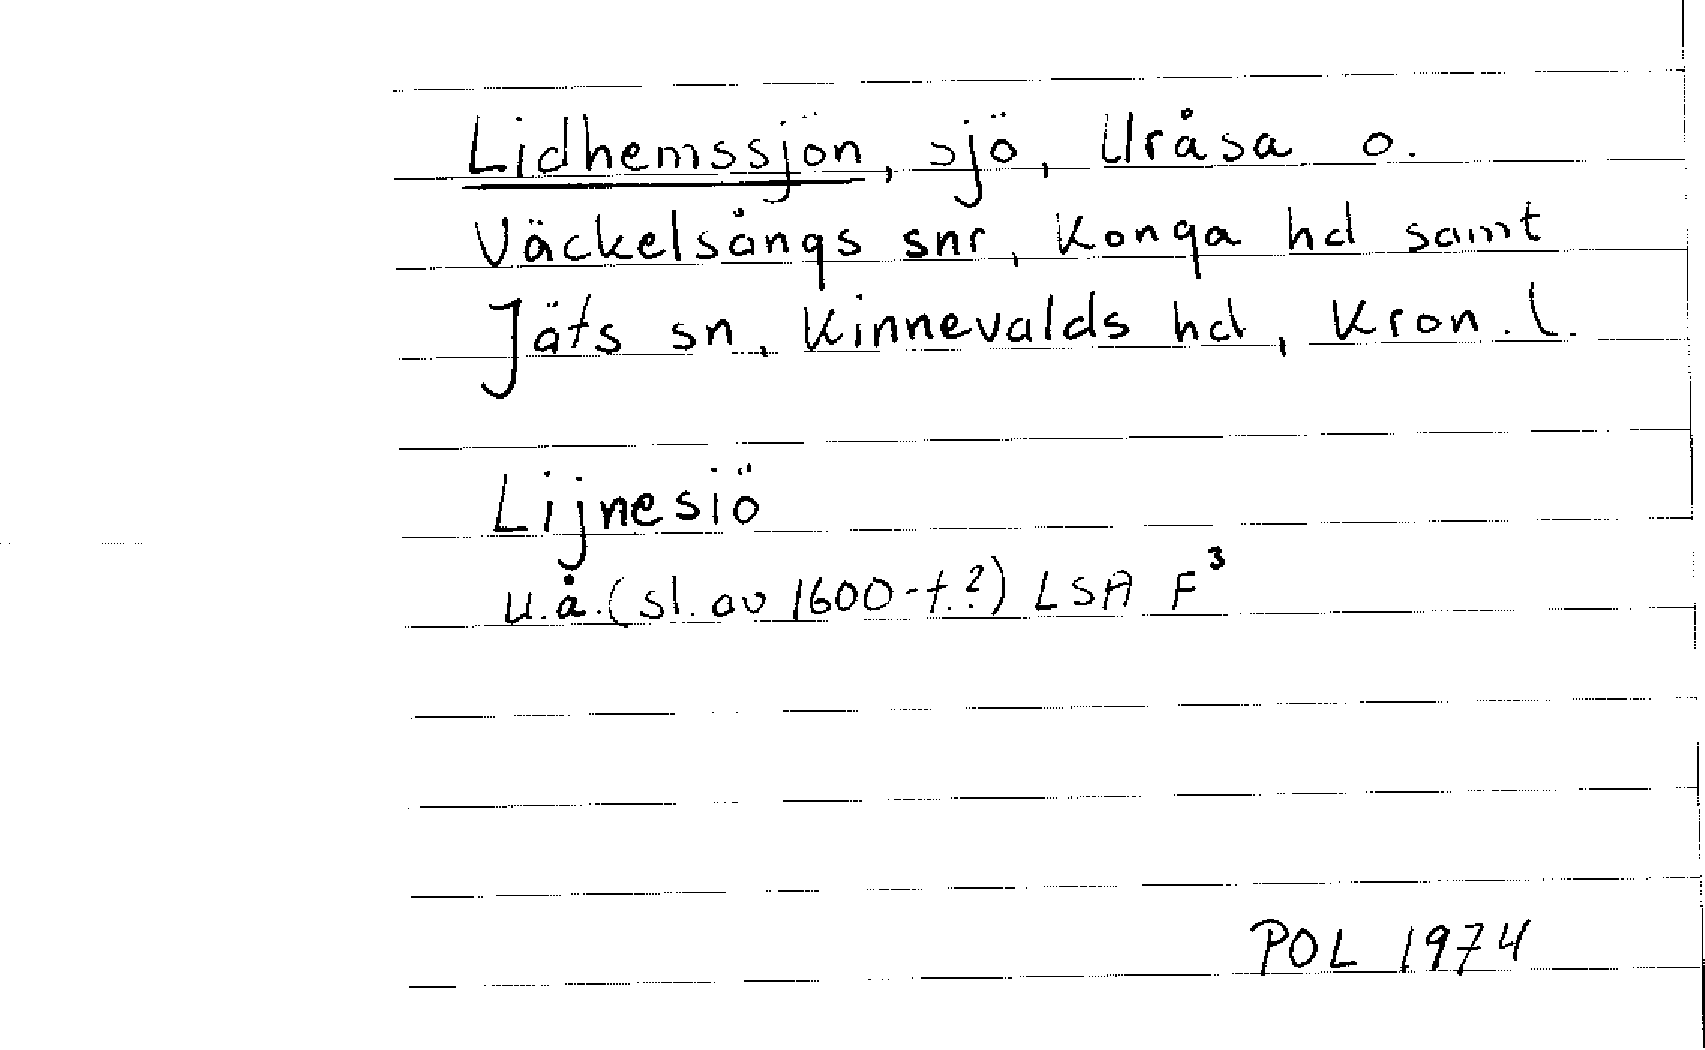 Lidhemssjön, sjö, Uråsa o.
Väckelsångs snr, Konga hd samt
Jäts sn, Kinnevalds hd, Kron. l.
Lijnesiö
u.å. (sl. av 1600-t.?) LSA F³
POL 1974